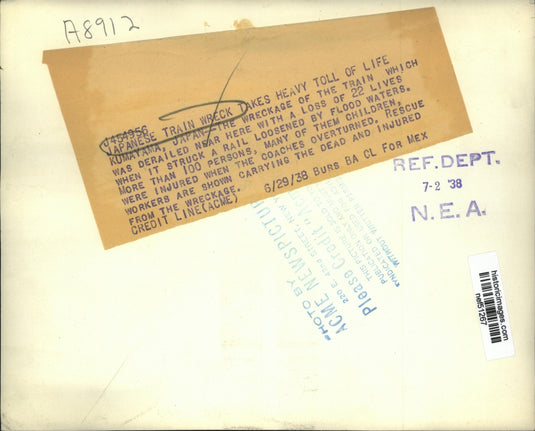 A8912
J454956
JAPANESE TRAIN WRECK TAKES HEAVY TOLL OF LIFE
KUMAYAMA, JAPAN--THE WRECKAGE OF THE TRAIN WHICH
WAS DERAILED NEAR HERE WITH A LOSS OF 22 LIVES
WHEN IT STRUCK A RAIL LOOSENED BY FLOOD WATERS.
MORE THAN 100 PERSONS, MANY OF THEM CHILDREN,
WERE INJURED WHEN THE COACHES OVERTURNED. RESCUE
WORKERS ARE SHOWN CARRYING THE DEAD AND INJURED
FROM THE WRECKAGE.
CREDIT LINE(ACME) 6/29/38 BURS BA CL FOR MEX
REF. DEPT.
7-2 '38
N.E.A.
PHOTO BY
ACME NEWSPICTURES
220 E. 42ND STREET, NEW
Please Credit "Ac
THIS PICTURE
PUBLICATION
WITHOUT WRITTEN
historicimages.com
nef51267